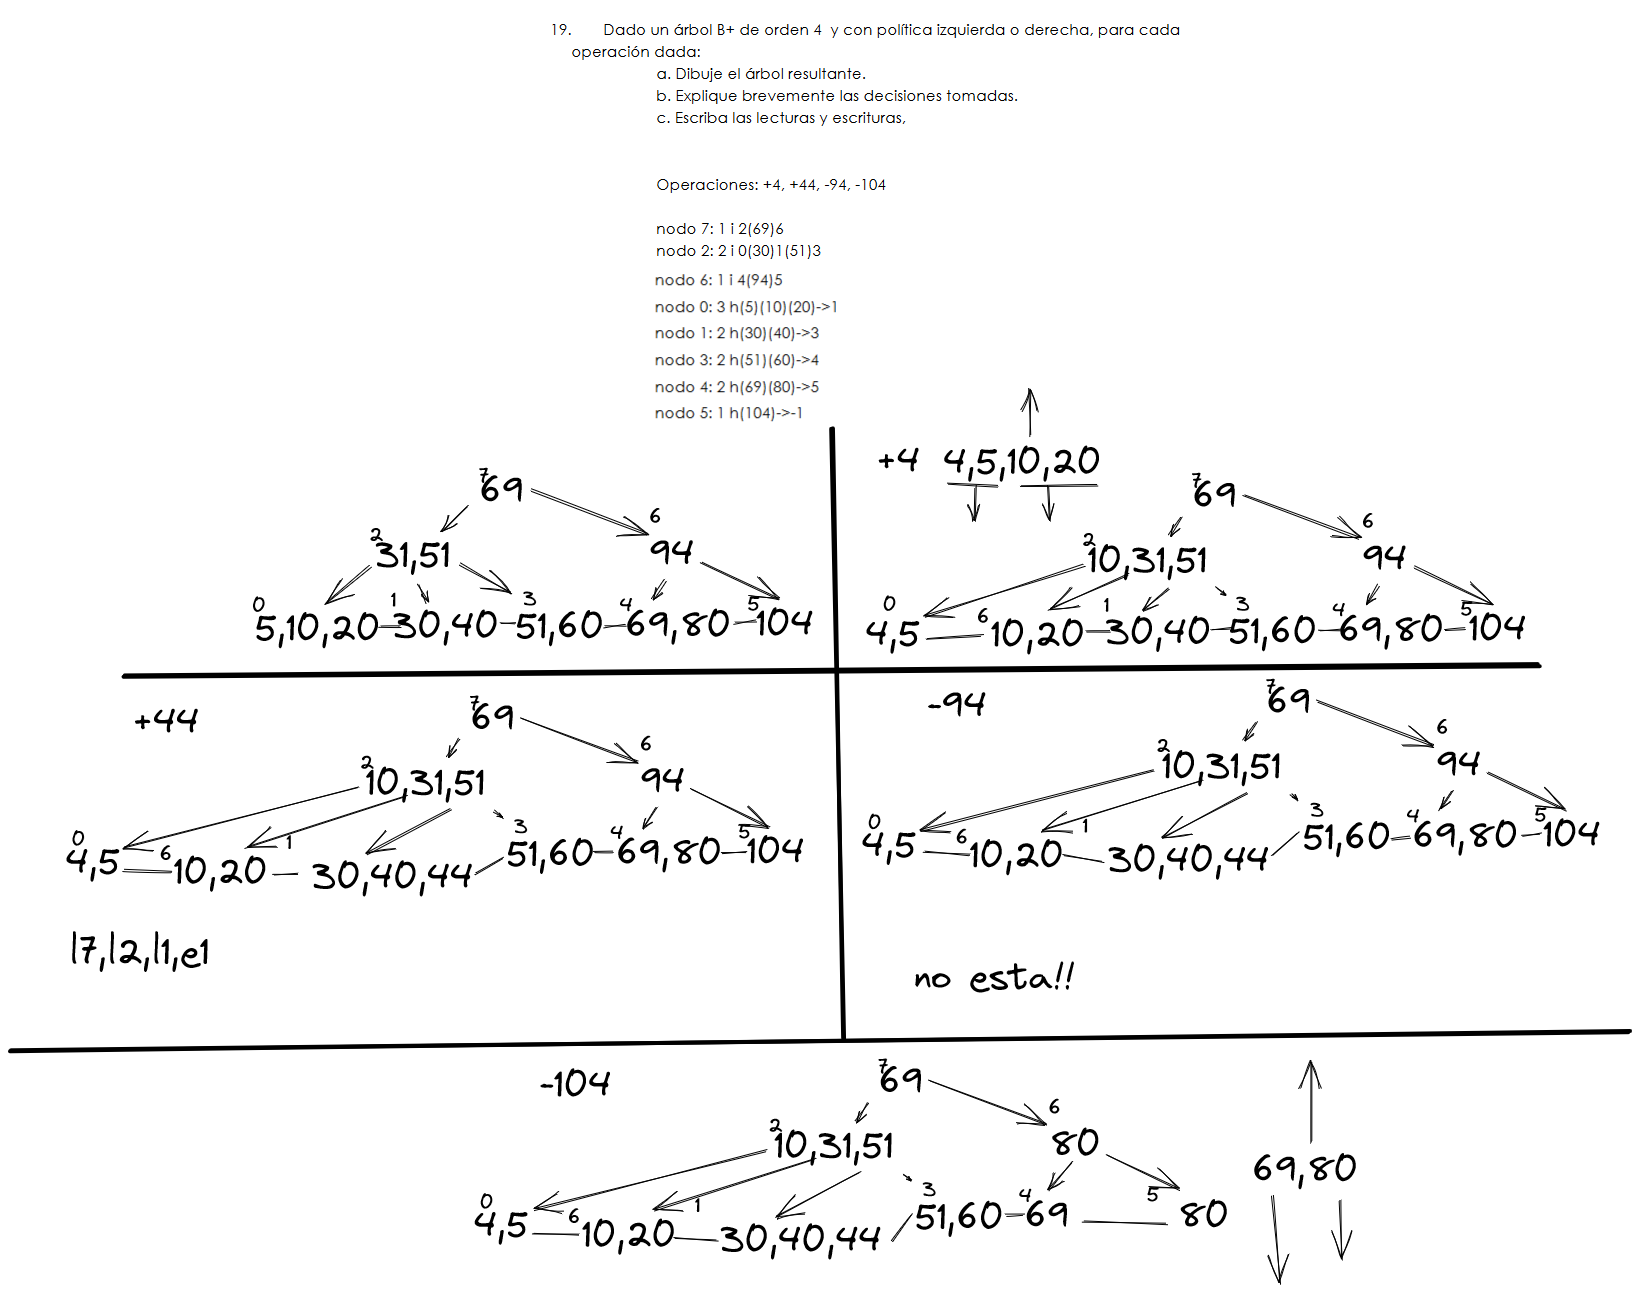 19. Dado un árbol B+ de orden 4 y con política izquierda o derecha, para cada
operación dada:
a. Dibuje el árbol resultante.
b. Explique brevemente las decisiones tomadas.
c. Escriba las lecturas y escrituras,
Operaciones: +4, +44, -94, -104
nodo 7: 1 i 2(69)6
nodo 2: 2 i 0(30)1(51)3
nodo 6: 1 i 4(94)5
nodo 0: 3 h(5)(10)(20)->1
nodo 1: 2 h(30)(40)->3
nodo 3: 2 h(51)(60)->4
nodo 4: 2 h(69)(80)->5
nodo 5: 1 h(104)->-1
7
69
6
2
31,51 94
0 1 3 4 5
5,10,20 30,40 51,60 69,80 104
+4 4,5,10,20
7
69
6
2
10,31,51 94
0 6 1 3 4 5
4,5 10,20 30,40 51,60 69,80 104
+44
7
69
6
2
10,31,51 94
0 6 1 3 4 5
4,5 10,20 30,40,44 51,60 69,80 104
l7,l2,l1,e1
-94
7
69
6
2
10,31,51 94
0 6 1 3 4 5
4,5 10,20 30,40,44 51,60 69,80 104
no esta!!
-104
7
69
6
2
10,31,51 80
0 6 1 3 4 5
4,5 10,20 30,40,44 51,60 69 80
69,80